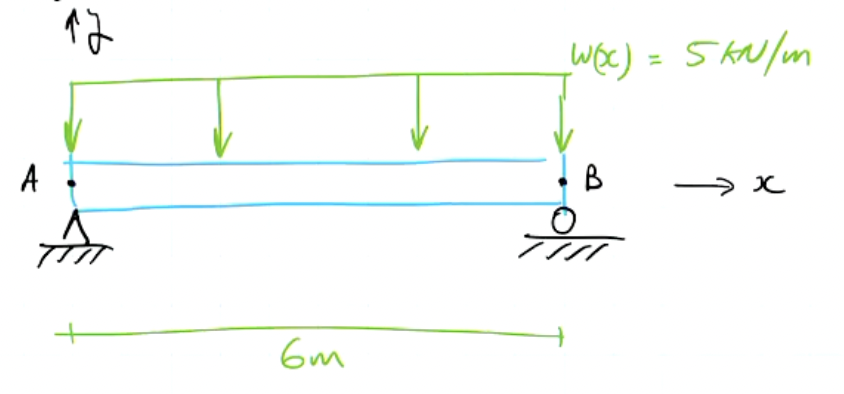 y
w(x) = 5 kN/m
A
B
x
6m